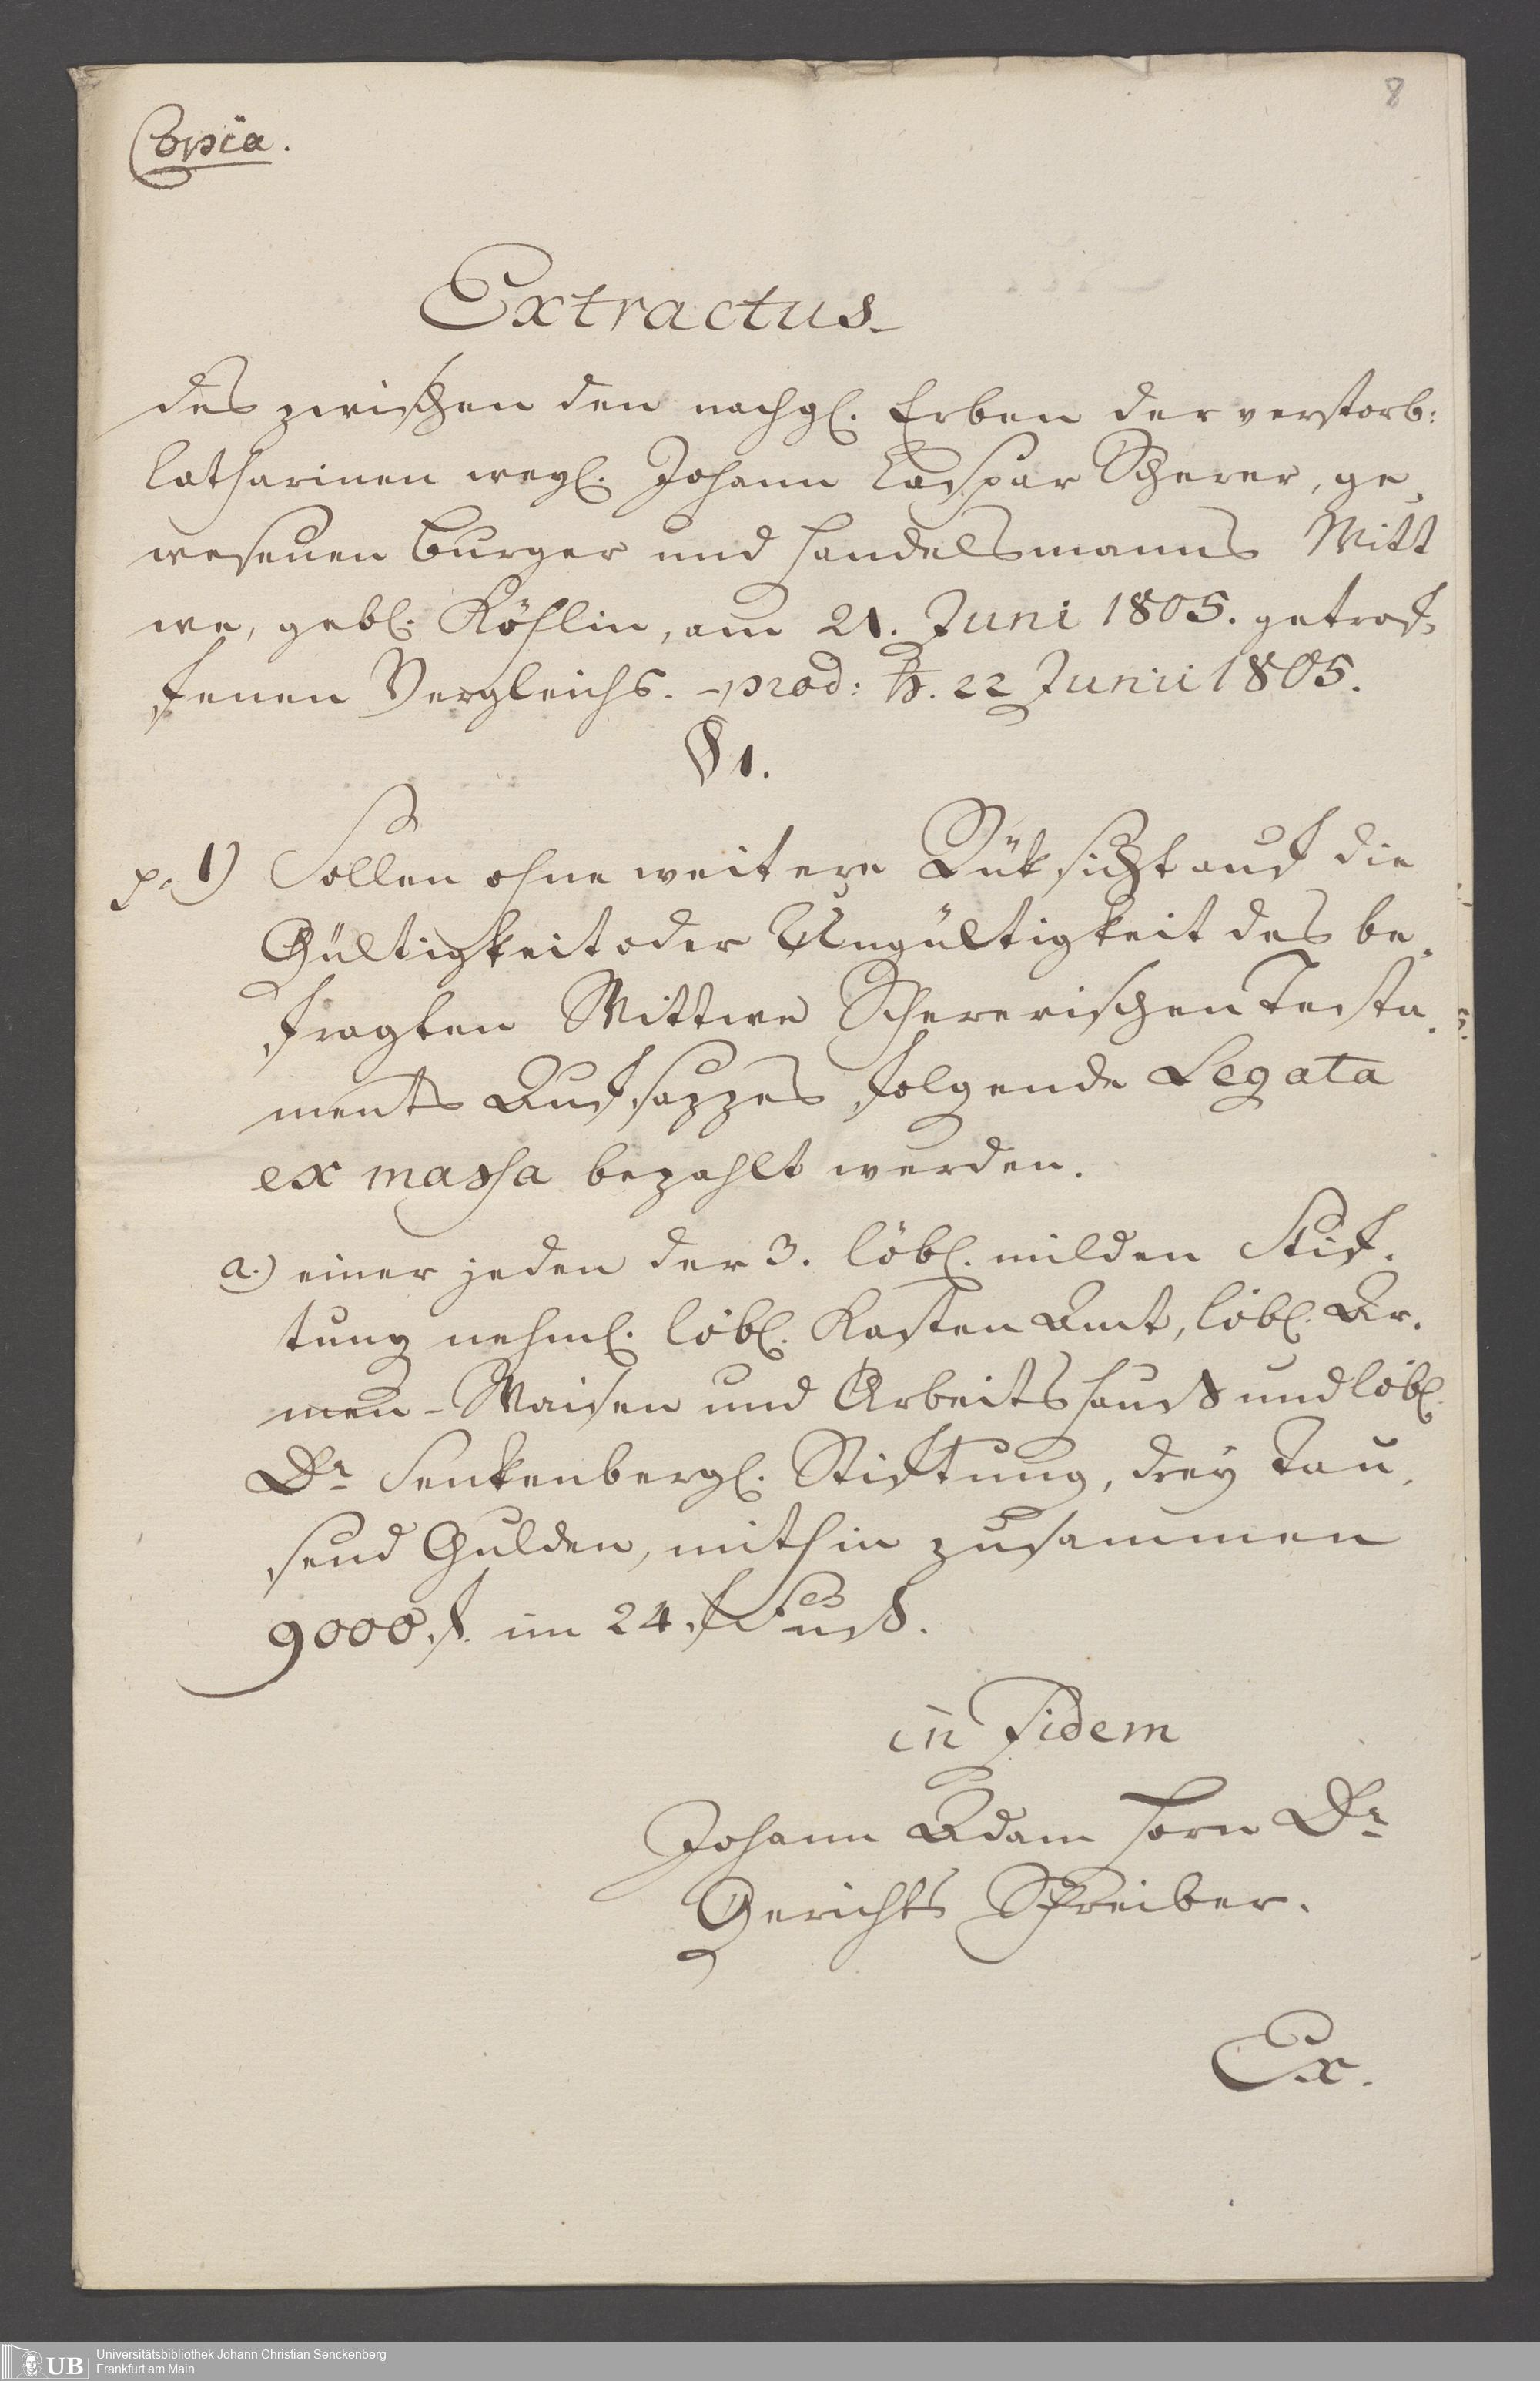 8
Copia.
Extractus
des zwischen den nachgl. Erben der verstorb:
Catharinen weyl. Johann Caspar Scherer, ge-
wesenen Burger und Handelsmanns Witt
we, gebl. Köhlin, am 21. Juni 1805. getrof-
fenen Vergleichs. - prod: ♄. 22 Junii 1805.
§ 1.
p. 1) Sollen ohne weitere Rüksicht auf die
Gültigkeit oder Ungültigkeit des be-
fragten Wittwe Schererischen Testa-
ments Aufsazzes folgende Legata
ex massa bezahlt werden.
a.) einer jeden der 3. löbl. milden Stif-
tung nehml. löbl. Kasten Amt, löbl. Ar-
men- Waisen und Arbeitshaus und löbl.
Dr Senkenbergl. Stiftung, drey Tau-
send Gulden, mithin zusammen
9000 f. im 24. f Fus.
in Fidem
Johann Adam Horn Dr
Gerichts Schreiber.
Ex.
UB
Universitätsbibliothek Johann Christian Senckenberg
Frankfurt am Main